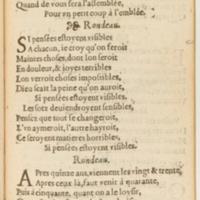 Quand de vous sera l'assemblée,
Pour vn petit coup à l'emblée.
Rondeau.
SI pensées estoyent visibles
A chacun, ie croy qu'on feroit
Maintes choses, dont lon seroit
En douleur, & ioyes terribles
Lon verroit choses impossibles,
Dieu scait la peine qu'on auroit,
Si pensées estoyent visibles.
Les sots deuiendroyent sensibles,
Pensez que tout se changeroit,
L'vn aymeroit, l'autre hayroit,
Ce seroyent matieres horribles,
Si pensées estoyent visibles.
Rondeau.
APres quinze ans, viennent les vingt & trente,
Apres ceux là, faut venir à quarante,
Puis à cinquante, quant on a le loysir,